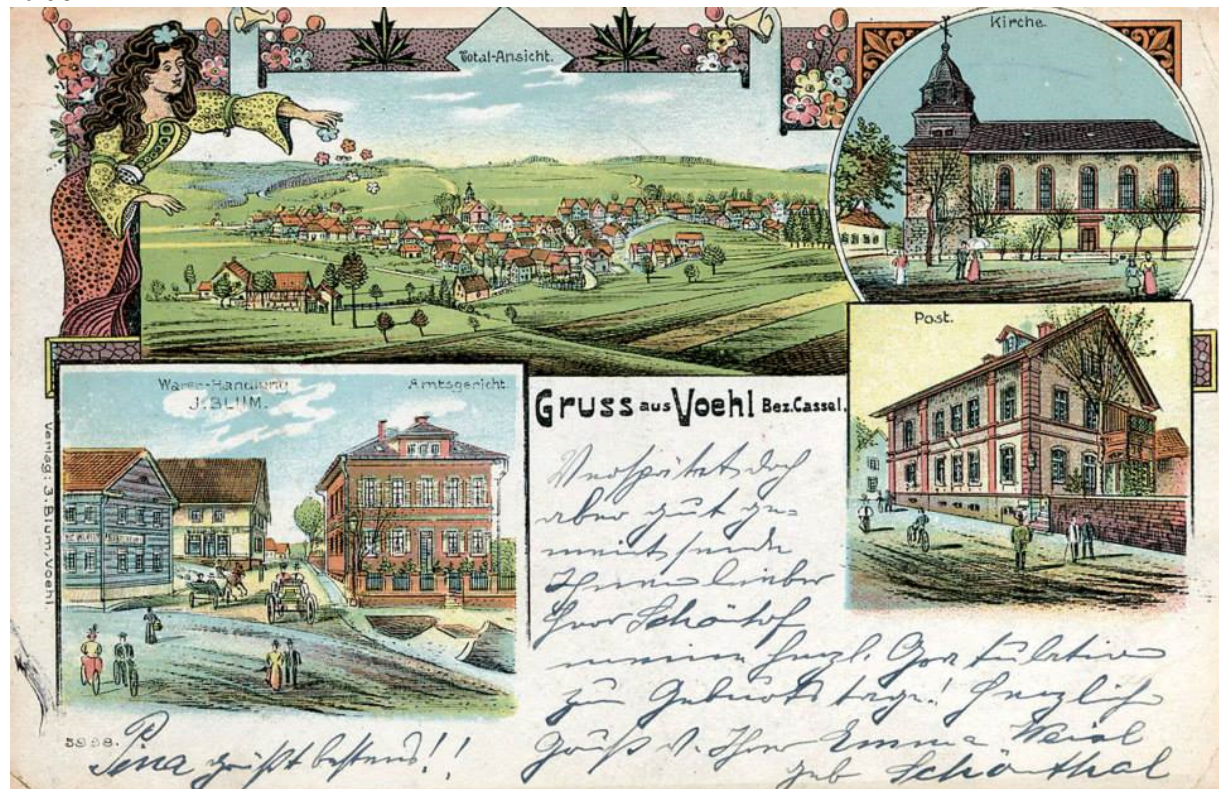 Total-Ansicht.
Kirche.
Post.
Waren-Handlung
J. BLUM.
Amtsgericht.
Gruss aus Voehl Bez. Cassel.
Verspätet doch
aber gut ge-
meint sende
Ihnen lieber
Herr Schönhof
meine herzl. Gratulation
zum Geburtstage! Herzlich
grüßt S. Ihre Emma Weisl
geb Schönthal
Verlag: J. Blum, Voehl.
5998.
grüßt bestens!!